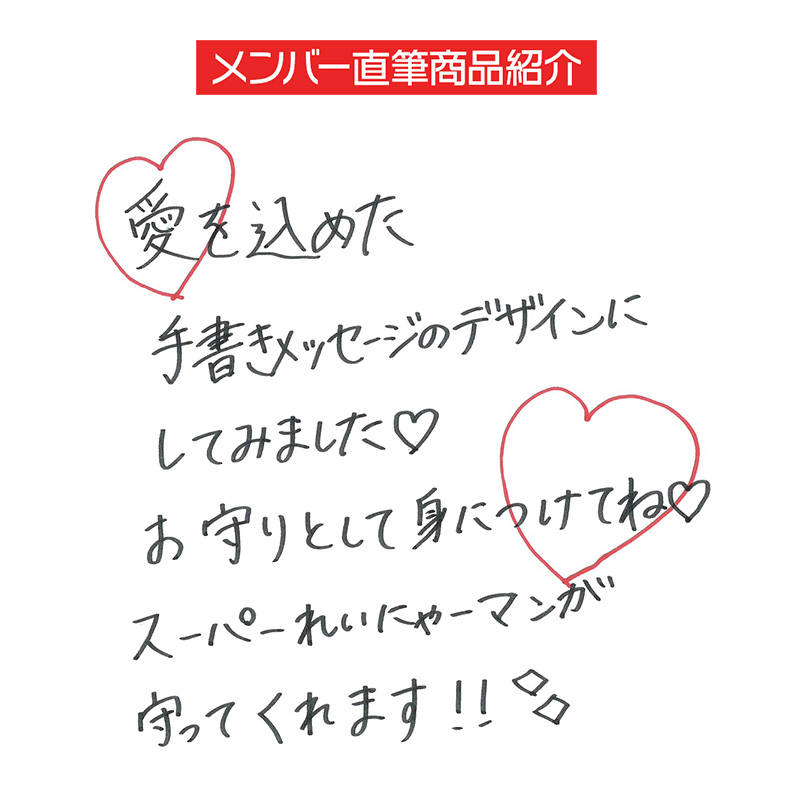 メンバー直筆商品紹介
愛を込めた
手書きメッセージのデザインに
してみました♡
お守りとして身につけてね♡
スーパーれいにゃーマンが
守ってくれます!!